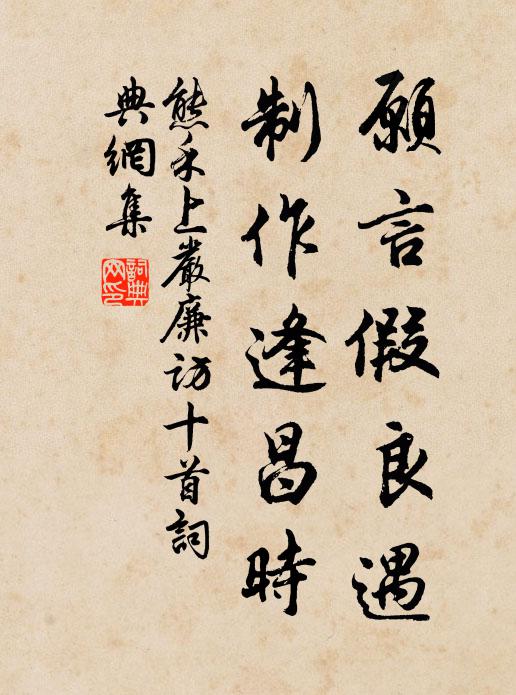 願言假良遇
制作逢昌時
熊禾上嚴廉訪十首詞
典網集
詞典
网印